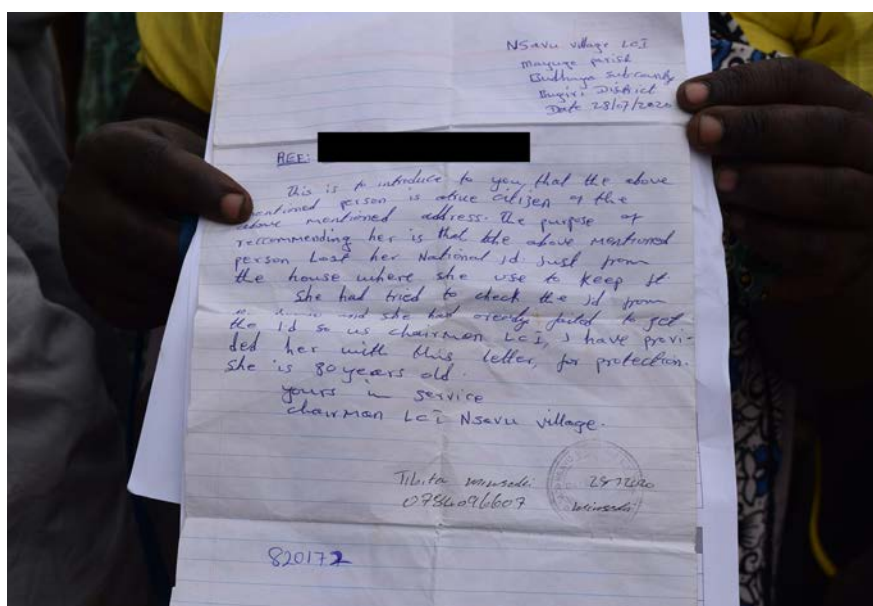 Nsavu village LCI
mayuge parish
Budhaya subcounty
Bugiri District
Date 28/07/2020
REF:
This is to introduce to you, that the above
mentioned person is atrue citizen of the
above mentioned address. The purpose of
reccommending her is that the above mentioned
person Lost her National id just from
the house where she use to keep it
She had tried to check the id from
and she had already failed to get
the id so us chairman LCI, I have provi-
ded her with this letter, for protection.
She is 80 years old.
yours in service
chairman LCI Nsavu village.
Tibita
0784096607
820172